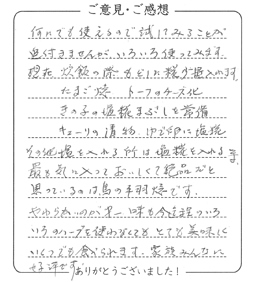 ご意見・ご感想
何にでも使えるので試してみることが
追付きませんが いろいろ使ってみます。
現在 炊飯の際 かくし 糀が塩入れます
たまご焼 トーフのチーズ化
きの子の塩糀まぶしを常備
キューリの漬物 ゆで卵に塩糀
その他塩を入れる所は塩糀を入れるます
最も気に入っておいしくて絶品だと
思っているのは鳥の手羽焼です。
やわらかいのが才一 味も今迄いろいろ
いろのハーブを使わなくても とても美味に
いくつでも食べられます。家族みんなに
好評です
ありがとうございました!